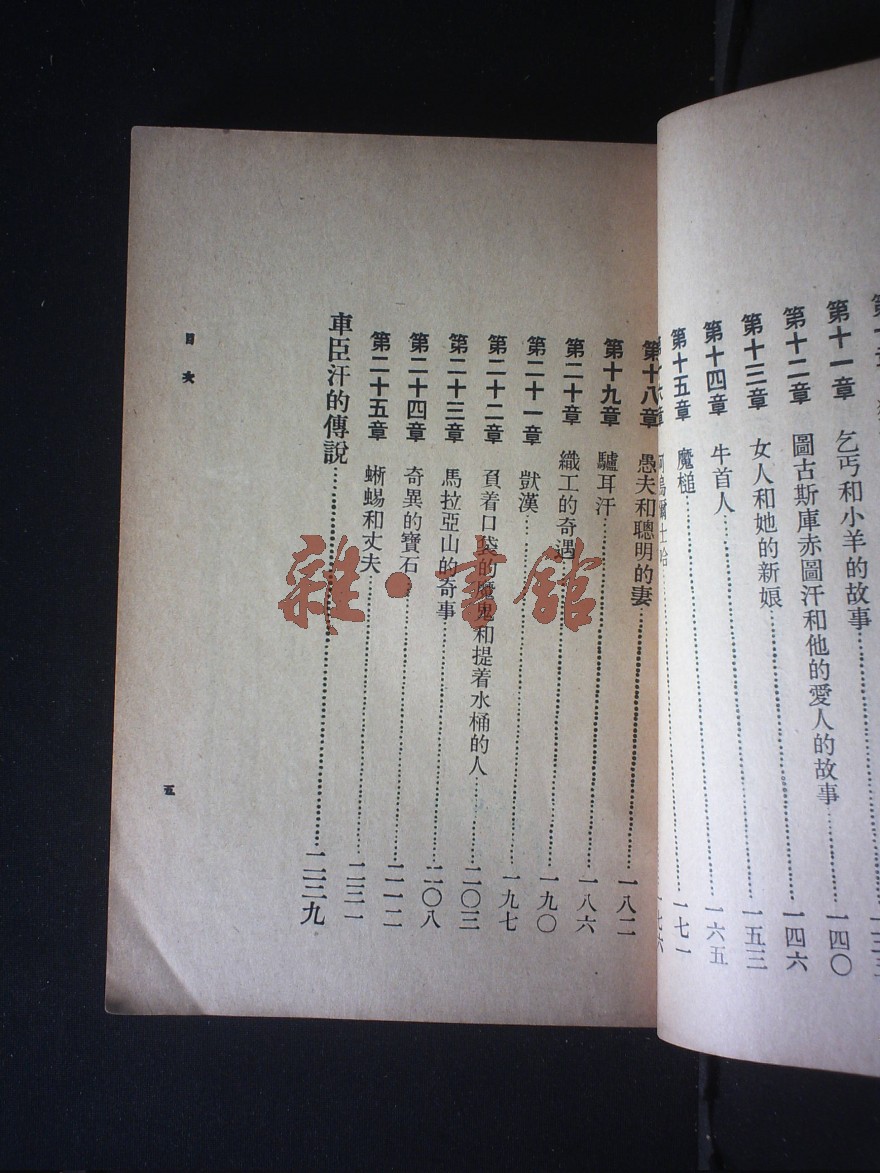 第十一章　乞丐和小羊的故事……一四〇
第十二章　圖古斯庫赤圖汗和他的愛人的故事……一四六
第十三章　女人和她的新娘……一五三
第十四章　牛首人……一六五
第十五章　魔槌……一七一
一七六
第十八章　愚夫和聰明的妻……一八二
第十九章　驢耳汗……一八六
第二十章　織工的奇遇……一九〇
第二十一章　獃漢……一九七
第二十二章　負着口袋的魔鬼和提着水桶的人……二〇三
第二十三章　馬拉亞山的奇事……二〇八
第二十四章　奇異的寶石……二一二
第二十五章　蜥蜴和丈夫……二三一
車臣汗的傳說……二三九
目次
五
雜·書館